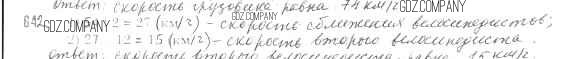 ответ: скорость грузовика равна 74 км/ч GDZ.COMPANY
642 GDZ.COMPANY 2 = 27 (км/ч) – скорость сближения велосипедистов; GDZ.COMPANY
2) 27 12 = 15 (км/ч) – скорость второго велосипедиста.
ответ: скорость второго велосипедиста равна 15 км/ч.